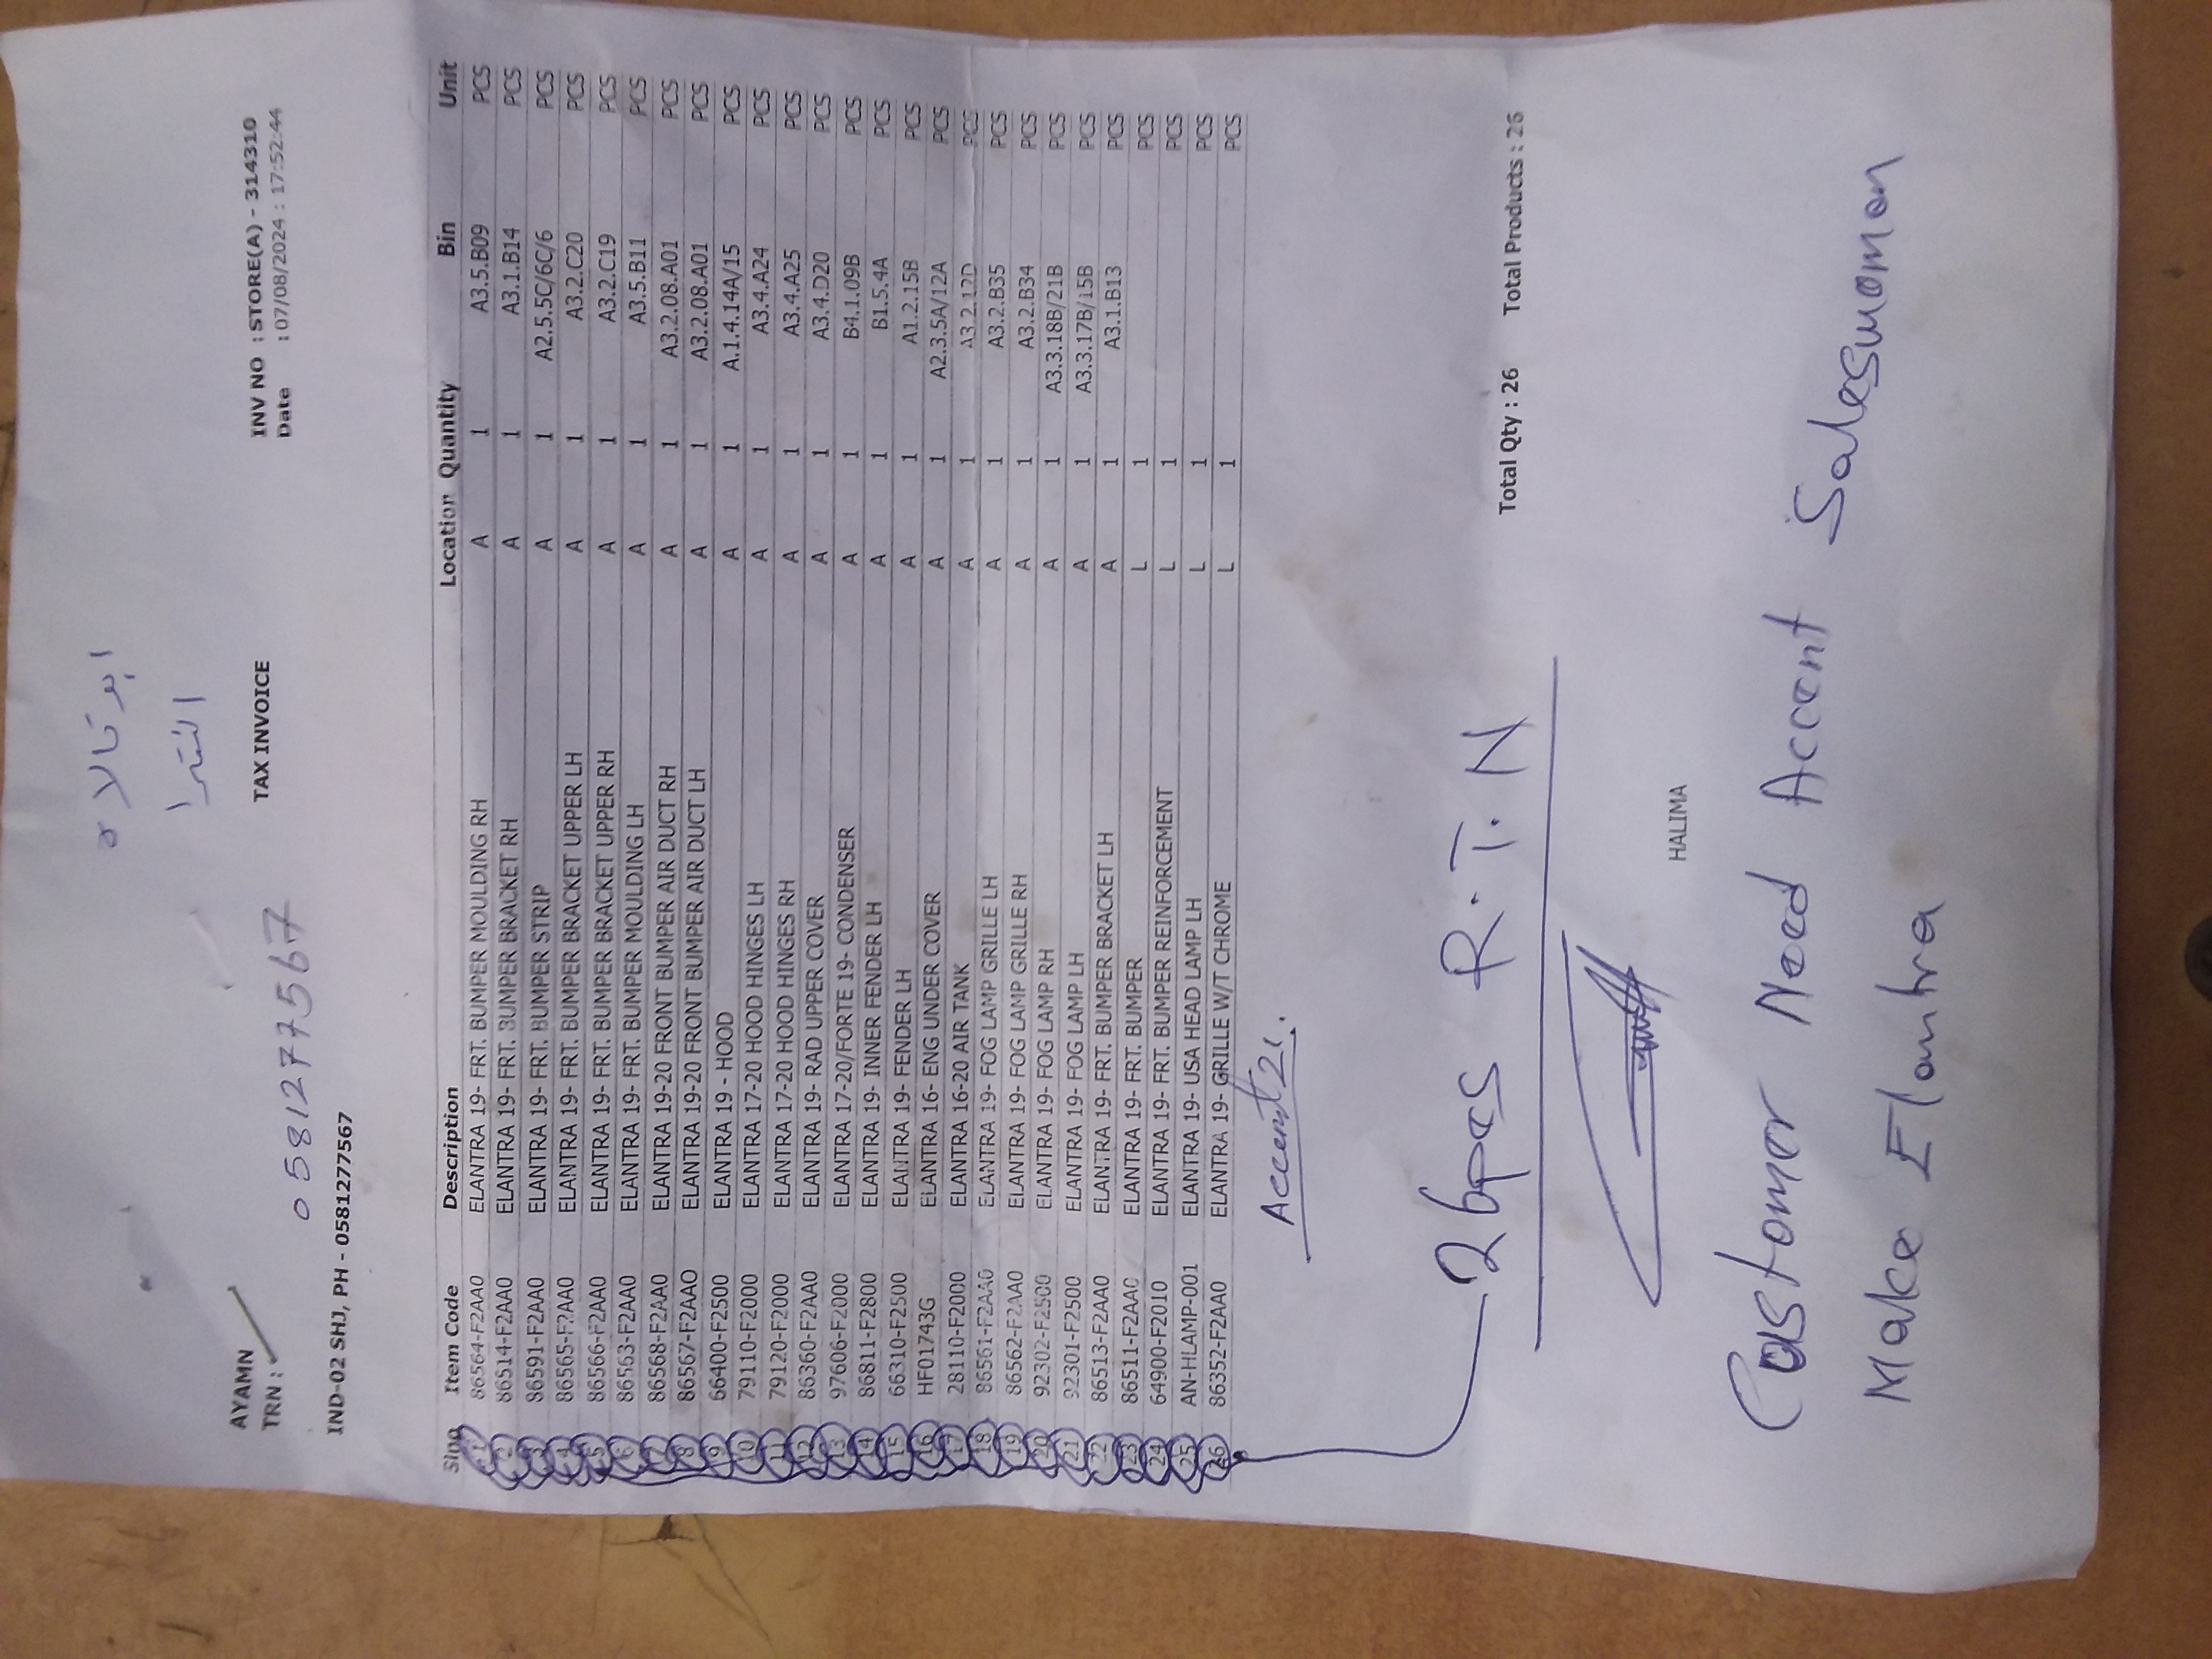 ابو تالا ه
النترا
AYAMN
TRN :
TAX INVOICE
INV NO : STORE(A) - 314310
Date : 07/08/2024 : 17:52:44
0581277567
IND-02 SHJ, PH - 0581277567
Slno Item Code Description Location Quantity Bin Unit
1 86564-F2AA0 ELANTRA 19- FRT. BUMPER MOULDING RH A 1 A3.5.B09 PCS
2 86514-F2AA0 ELANTRA 19- FRT. BUMPER BRACKET RH A 1 A3.1.B14 PCS
3 86591-F2AA0 ELANTRA 19- FRT. BUMPER STRIP A 1 A2.5.5C/6C/6 PCS
4 86565-F2AA0 ELANTRA 19- FRT. BUMPER BRACKET UPPER LH A 1 A3.2.C20 PCS
5 86566-F2AA0 ELANTRA 19- FRT. BUMPER BRACKET UPPER RH A 1 A3.2.C19 PCS
6 86563-F2AA0 ELANTRA 19- FRT. BUMPER MOULDING LH A 1 A3.5.B11 PCS
7 86568-F2AA0 ELANTRA 19-20 FRONT BUMPER AIR DUCT RH A 1 A3.2.08.A01 PCS
8 86567-F2AAO ELANTRA 19-20 FRONT BUMPER AIR DUCT LH A 1 A3.2.08.A01 PCS
9 66400-F2500 ELANTRA 19 - HOOD A 1 A.1.4.14A/15 PCS
10 79110-F2000 ELANTRA 17-20 HOOD HINGES LH A 1 A3.4.A24 PCS
11 79120-F2000 ELANTRA 17-20 HOOD HINGES RH A 1 A3.4.A25 PCS
12 86360-F2AA0 ELANTRA 19- RAD UPPER COVER A 1 A3.4.D20 PCS
13 97606-F2000 ELANTRA 17-20/FORTE 19- CONDENSER A 1 B4.1.09B PCS
14 86811-F2800 ELANTRA 19- INNER FENDER LH A 1 B1.5.4A PCS
15 66310-F2500 ELANTRA 19- FENDER LH A 1 A1.2.15B PCS
16 HF01743G ELANTRA 16- ENG UNDER COVER A 1 A2.3.5A/12A PCS
17 28110-F2000 ELANTRA 16-20 AIR TANK A 1 A3.2.12D PCS
18 86561-F2AA0 ELANTRA 19- FOG LAMP GRILLE LH A 1 A3.2.B35 PCS
19 86562-F2AA0 ELANTRA 19- FOG LAMP GRILLE RH A 1 A3.2.B34 PCS
20 92302-F2500 ELANTRA 19- FOG LAMP RH A 1 A3.3.18B/21B PCS
21 92301-F2500 ELANTRA 19- FOG LAMP LH A 1 A3.3.17B/15B PCS
22 86513-F2AA0 ELANTRA 19- FRT. BUMPER BRACKET LH A 1 A3.1.B13 PCS
23 86511-F2AA0 ELANTRA 19- FRT. BUMPER L 1 PCS
24 64900-F2010 ELANTRA 19- FRT. BUMPER REINFORCEMENT L 1 PCS
25 AN-HLAMP-001 ELANTRA 19- USA HEAD LAMP LH L 1 PCS
26 86352-F2AA0 ELANTRA 19- GRILLE W/T CHROME L 1 PCS
Accent 21.
26pcs R.T.N
Total Qty : 26 Total Products : 26
HALIMA
Castomer Need Accent Saleswoman
Make Elantra